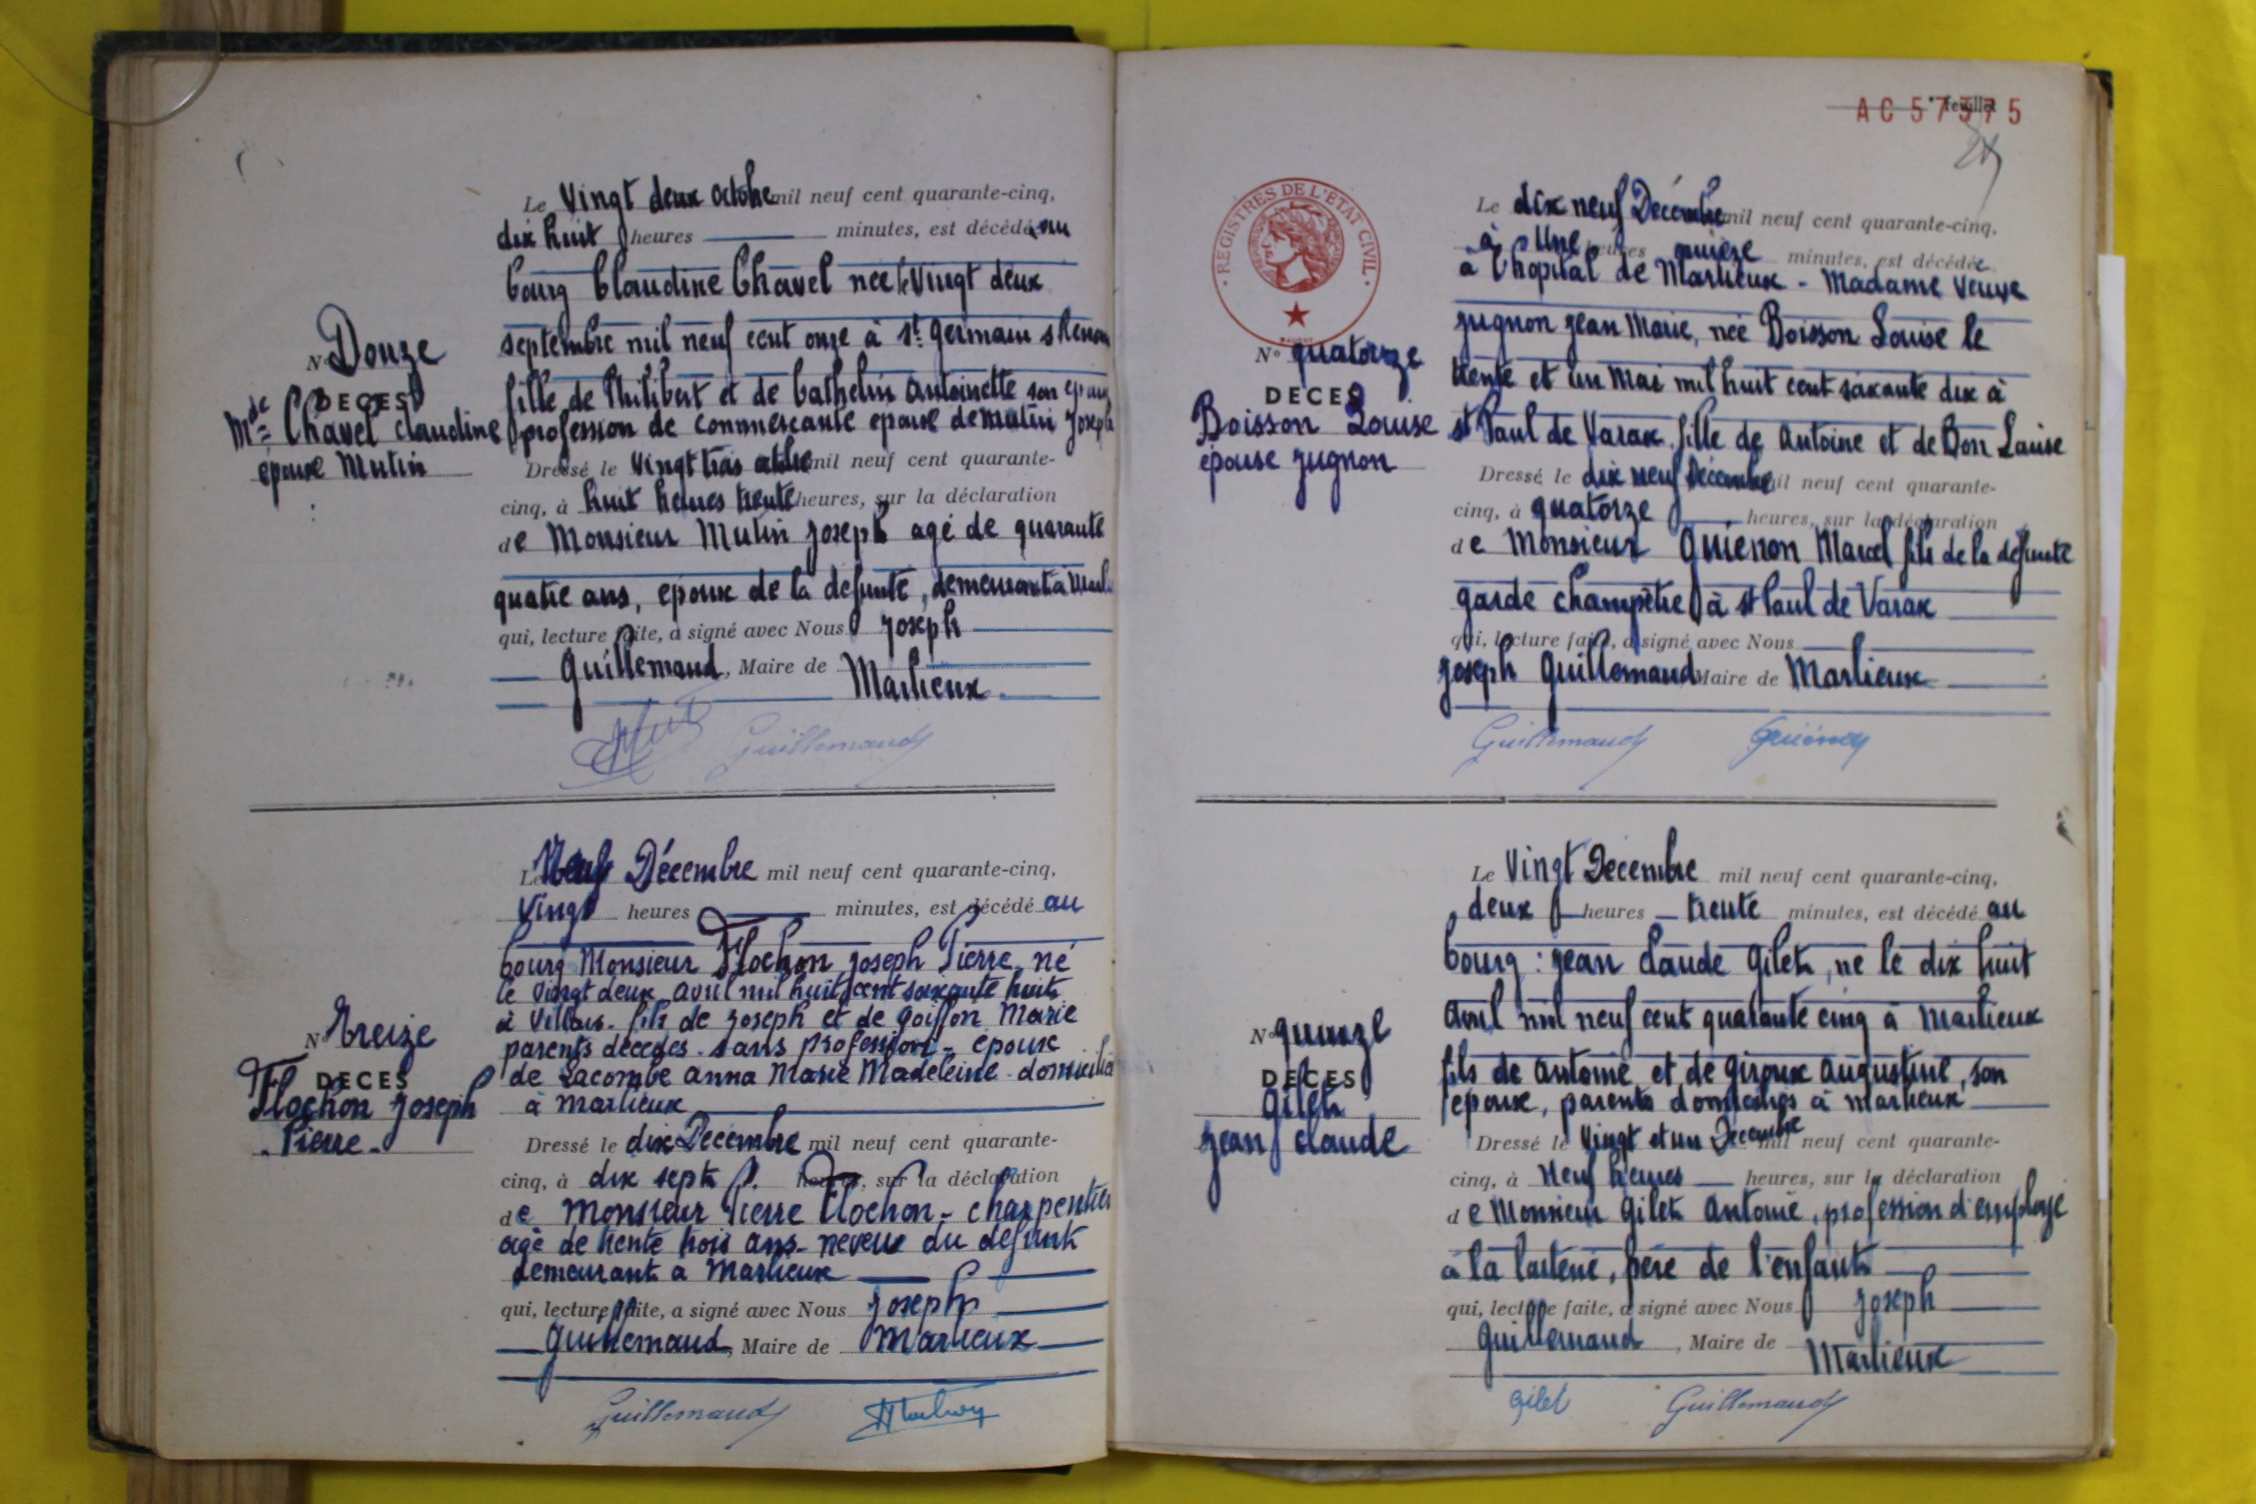 Le Vingt deux octobre mil neuf cent quarante-cinq,
dix huit heures minutes, est décédé au
bourg Claudine Chavel née le Vingt deux
septembre mil neuf cent onze à St. Germain s/ Renon
fille de Philibert et de Cathelin Antoinette son épouse
profession de commerçante épouse de Mutin Joseph
N° Douze
DECES
Mde Chavel Claudine
épouse Mutin
Dressé le Vingt trois octobre mil neuf cent quarante-
cinq, à huit heures trente heures, sur la déclaration
de Monsieur Mutin Joseph agé de quarante
quatre ans, époux de la défunte, demeurant à Marl.
qui, lecture faite, a signé avec Nous Joseph
Guillemaud, Maire de Marlieux
Guillemaud
Le Neuf Décembre mil neuf cent quarante-cinq,
Vingt heures minutes, est décédé au
bourg Monsieur Flochon Joseph Pierre, né
le Vingt deux avril mil huit cent soixante huit
à Villars. fils de Joseph et de Goiffon Marie
parents décédés. sans profession - époux
de Lacombe Anna Marie Madeleine - domicilié
à Marlieux
N° Treize
DECES
Flochon Joseph
- Pierre -
Dressé le dix Décembre mil neuf cent quarante-
cinq, à dix sept h. heures, sur la déclaration
de Monsieur Pierre Flochon - charpentier
agé de trente trois ans - neveux du défunt
demeurant à Marlieux
qui, lecture faite, a signé avec Nous Joseph
Guillemaud, Maire de Marlieux
Guillemaud Flochon
AC 57575
feuillet
REGISTRES DE L'ÉTAT CIVIL
Le dix neuf Décembre mil neuf cent quarante-cinq,
à Une heures quinze minutes, est décédée
à l'hopital de Marlieux - Madame Veuve
Jugnon Jean Marie, née Boisson Louise le
trente et un Mai mil huit cent soixante dix à
st Paul de Varax, fille de Antoine et de Bon Louise
N° quatorze
DECES
Boisson Louise
épouse Jugnon
Dressé le dix neuf Décembre mil neuf cent quarante-
cinq, à quatorze heures, sur la déclaration
de Monsieur Quienon Marcel fils de la défunte
garde champêtre à st Paul de Varax
qui, lecture faite, a signé avec Nous
Joseph Guillemaud Maire de Marlieux
Guillemaud
Le Vingt Décembre mil neuf cent quarante-cinq,
deux heures trente minutes, est décédé au
bourg : Jean Claude Gilet, né le dix huit
Avril mil neuf cent quarante cinq à Marlieux
fils de Antoine et de Giroux Augustine, son
épouse, parents domiciliés à Marlieux
N° quinze
DECES
Gilet
Jean Claude
Dressé le Vingt et un Décembre mil neuf cent quarante-
cinq, à Neuf heures heures, sur la déclaration
de Monsieur Gilet Antoine, profession d'employé
à la laiterie, père de l'enfant
qui, lecture faite, a signé avec Nous Joseph
Guillemaud, Maire de Marlieux
Gilet Guillemaud